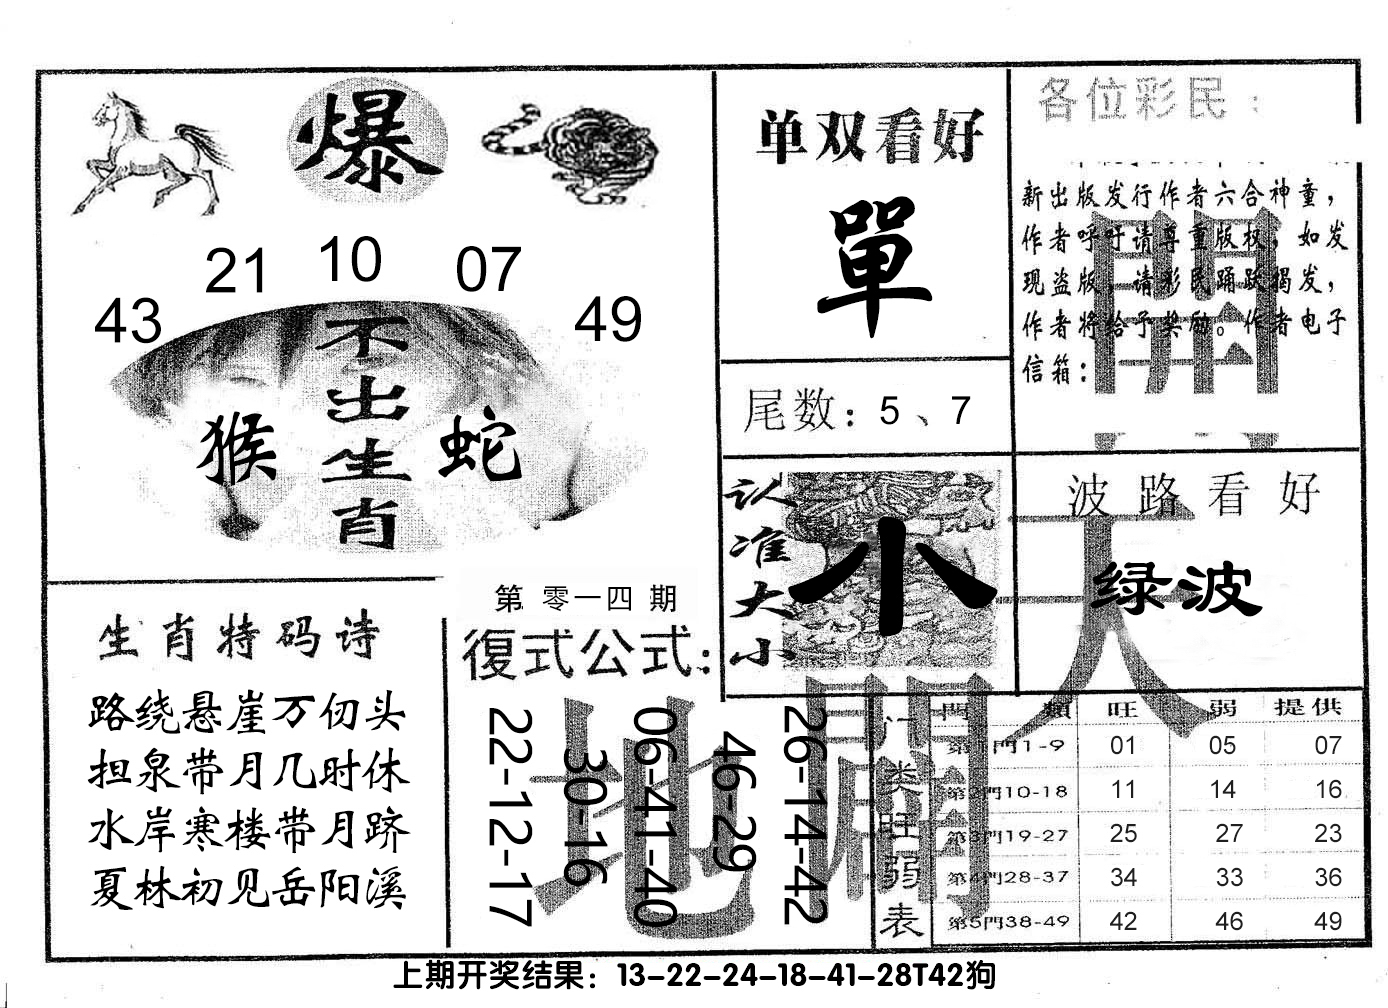 爆
43 21 10 07 49
不出生肖
猴 蛇
单双看好
單
尾数：5、7
各位彩民：
新出版发行作者六合神童，
作者呼吁请尊重版权，如发
现盗版，请彩民踊跃揭发，
作者将给予奖励。作者电子
信箱：
認准大小
小
波路看好
绿波
生肖特码诗
路绕悬崖万仞头
担泉带月几时休
水岸寒楼带月跻
夏林初见岳阳溪
第零一四期
復式公式：
22-12-17
30-16
06-41-40
46-29
26-14-42
天
地
開
门类旺弱表
門類 旺 弱 提供
第1門1-9 01 05 07
第2門10-18 11 14 16
第3門19-27 25 27 23
第4門28-37 34 33 36
第5門38-49 42 46 49
上期开奖结果：13-22-24-18-41-28T42狗